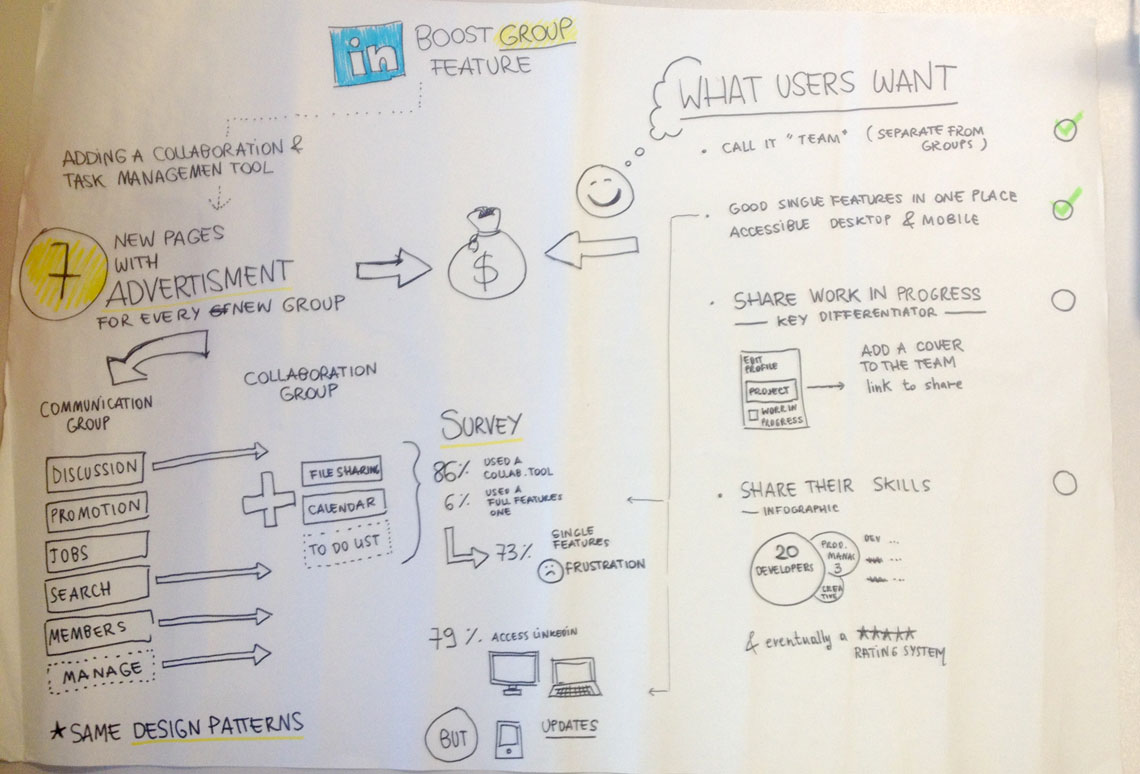 in BOOST GROUP
FEATURE
ADDING A COLLABORATION &
TASK MANAGEMEN TOOL
7
NEW PAGES
WITH
ADVERTISMENT
FOR EVERY NEW GROUP
$
COMMUNICATION
GROUP
DISCUSSION
PROMOTION
JOBS
SEARCH
MEMBERS
MANAGE
*SAME DESIGN PATTERNS
COLLABORATION
GROUP
FILE SHARING
CALENDAR
TO DO LIST
SURVEY
86% USED A
COLLAB. TOOL
6% USED A
FULL FEATURES
ONE
73% SINGLE
FEATURES
FRUSTRATION
79% ACCESS LINKEDIN
BUT
UPDATES
WHAT USERS WANT
• CALL IT "TEAM" (SEPARATE FROM
GROUPS)
• GOOD SINGLE FEATURES IN ONE PLACE
ACCESSIBLE DESKTOP & MOBILE
• SHARE WORK IN PROGRESS
— KEY DIFFERENTIATOR —
EDIT
PROFILE
PROJECT
WORK IN
PROGRESS
ADD A COVER
TO THE TEAM
link to share
• SHARE THEIR SKILLS
— INFOGRAPHIC
20
DEVELOPERS
PROD.
MANAG
3
CREA
TIVE
DEV ...
...
...
& eventually a ★★★★★
RATING SYSTEM